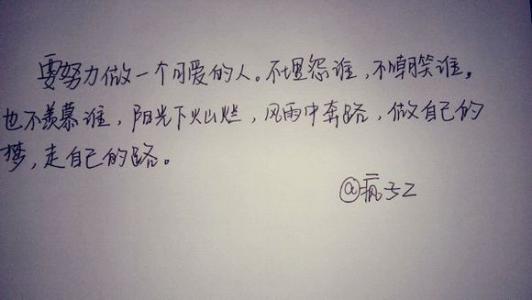 要努力做一个可爱的人。不埋怨谁,不嘲笑谁。
也不羡慕谁,阳光下灿烂,风雨中奔跑,做自己的
梦,走自己的路。
@疯子Z